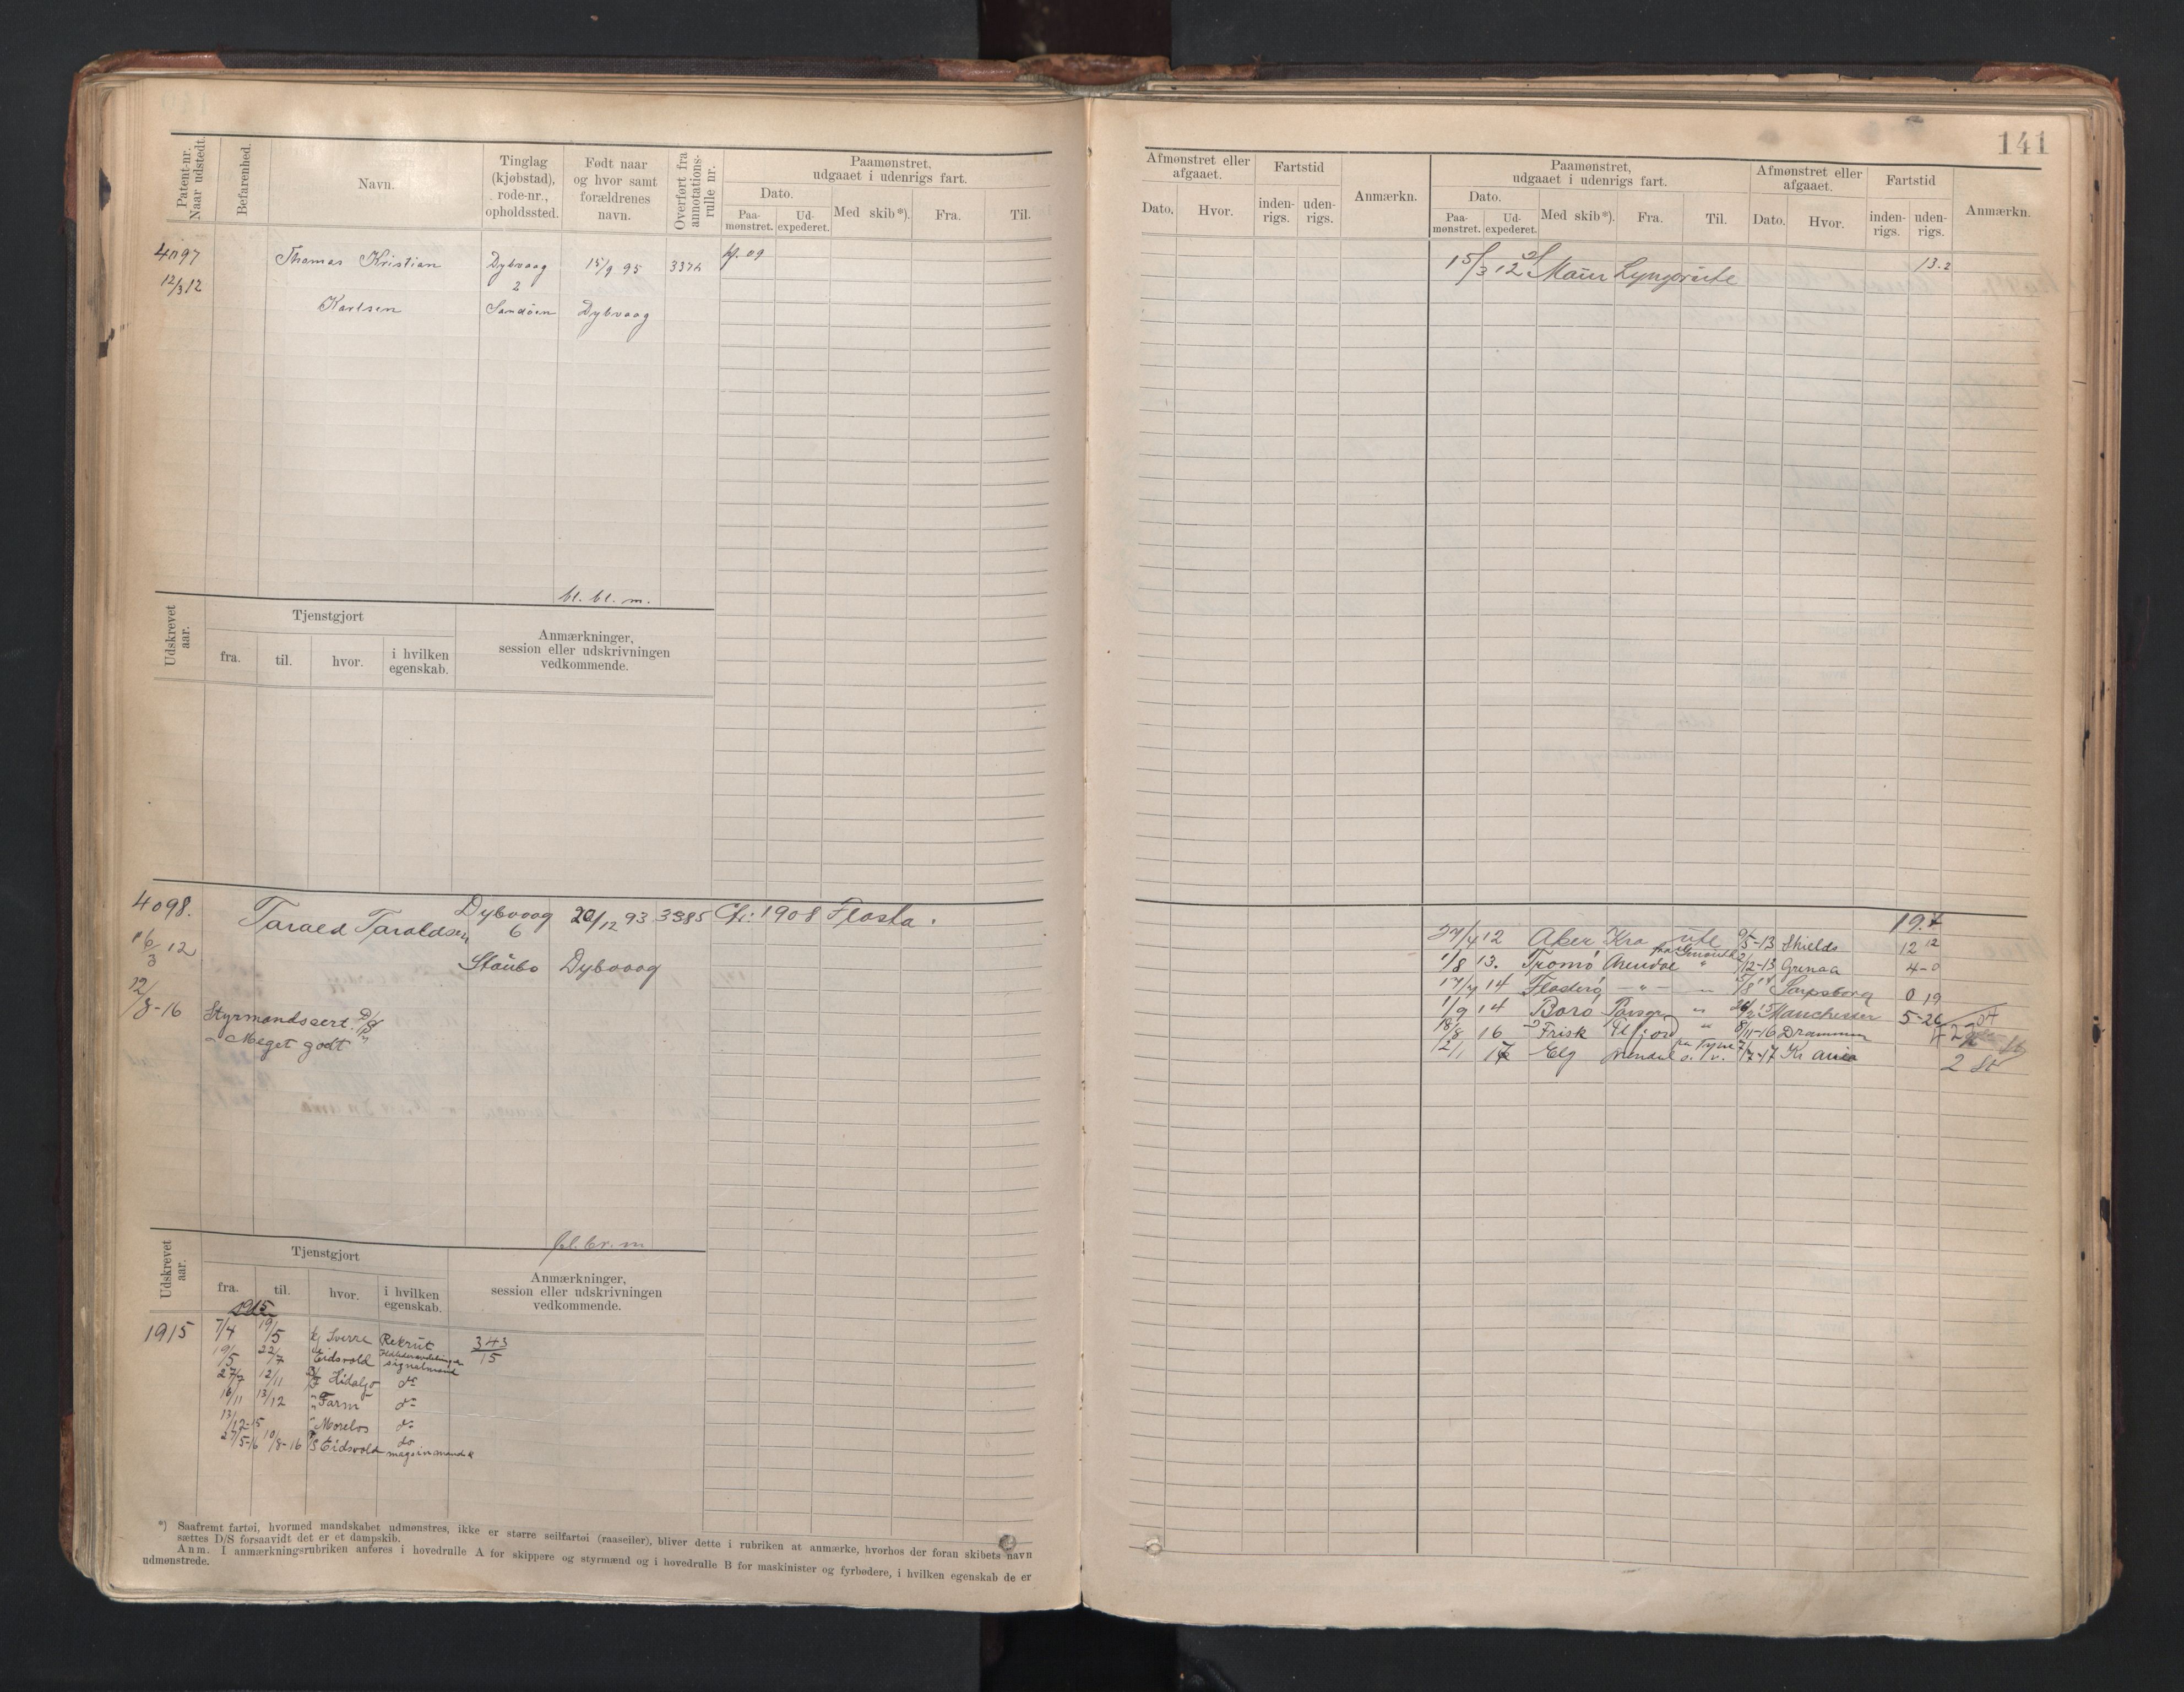 141
Patent-nr. Naar udstedt.
Befarenhed.
Navn.
Tinglag (kjøbstad), rode-nr., opholdssted.
Født naar og hvor samt forældrenes navn.
Overført fra annotations-rulle nr.
Paamønstret, udgaaet i udenrigs fart.
Dato.
Paa-mønstret.
Ud-expederet.
Med skib*).
Fra.
Til.
4097
12/3 12
Thomas Kristian
Karlsen
Dybvaag
2
Sandøen
15/9 95
Dybvaag
337
09
bl. bl. m.
Udskrevet aar.
Tjenstgjort
fra.
til.
hvor.
i hvilken egenskab.
Anmærkninger, session eller udskrivningen vedkommende.
4098.
16/3 12
12/8-16
Tarald Taraldsen
Dybvaag
6
Staubø
20/12 93
Dybvaag
3385
1908 Flosta.
Styrmandscert.
Meget godt
bl. br. m
Udskrevet aar.
Tjenstgjort
fra.
til.
hvor.
i hvilken egenskab.
Anmærkninger, session eller udskrivningen vedkommende.
1915
1915
7/4 19/5 Sverre Rekrut
343/15
19/5 22/7 Eidsvold signalmand
27/7 12/11 Hidalgo do
16/11 13/12 " Farm do
13/12-15 " Morelos do
27/5-16 10/8-16 Eidsvold do
*) Saafremt fartøi, hvormed mandskabet udmønstres, ikke er større seilfartøi (raaseiler), bliver dette i rubriken at anmærke, hvorhos der foran skibets navn
sættes D/S forsaavidt det er et dampskib.
Anm. I anmærkningsrubriken anføres i hovedrulle A for skippere og styrmænd og i hovedrulle B for maskinister og fyrbødere, i hvilken egenskab de er
udmønstrede.
Afmønstret eller afgaaet.
Dato.
Hvor.
Fartstid
inden-rigs.
uden-rigs.
Anmærkn.
Paamønstret, udgaaet i udenrigs fart.
Dato.
Paa-mønstret.
Ud-expederet.
Med skib*).
Fra.
Til.
Afmønstret eller afgaaet.
Dato.
Hvor.
Fartstid
inden-rigs.
uden-rigs.
Anmærkn.
15/3 12 Lyngør ute
13.2
19.7
27/4 12 Aker Kra ute 9/5-13 Shields 12 12
1/8 13. Tromø Arendal " 2/12-13 Grenaa 4-0
17/4 14 Flosterø - " - " Sarpsborg 0 19
1/9 14 Borø Porsgr. " Manchester 5-26
18/8 16 Frisk " 8/11-16 Drammen
12/1 17 Elg Arendal fra Tyne 7/7-17 Kr ania